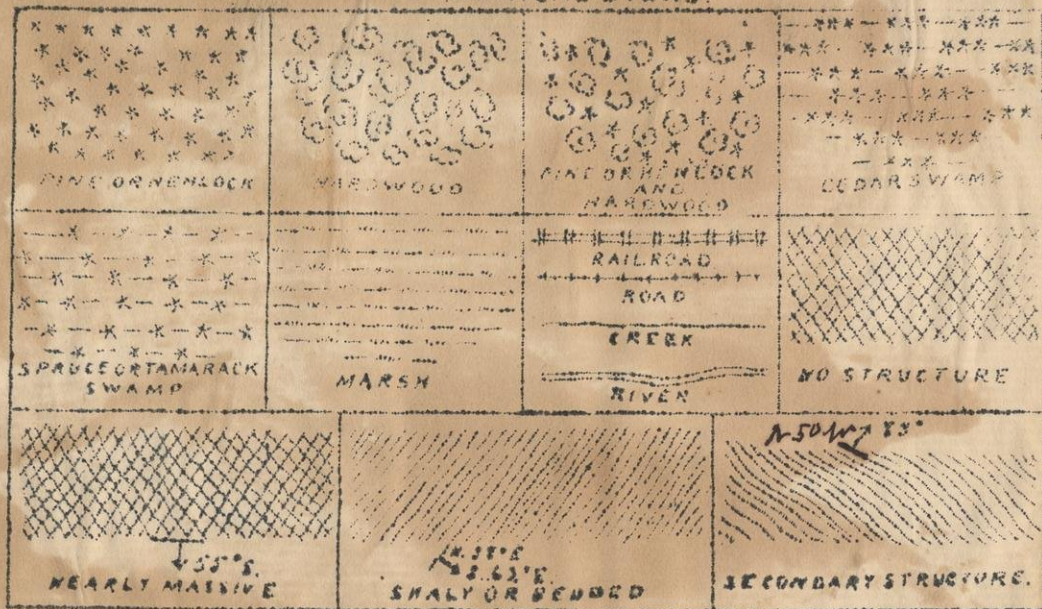 PINE OR HEMLOCK
HARDWOOD
PINE OR HEMLOCK
AND
HARDWOOD
CEDAR SWAMP
SPRUCE OR TAMARACK
SWAMP
MARSH
RAILROAD
ROAD
CREEK
RIVER
NO STRUCTURE
55° S.
NEARLY MASSIVE
SHALY OR BEDDED
N 50 W 
SECONDARY STRUCTURE.